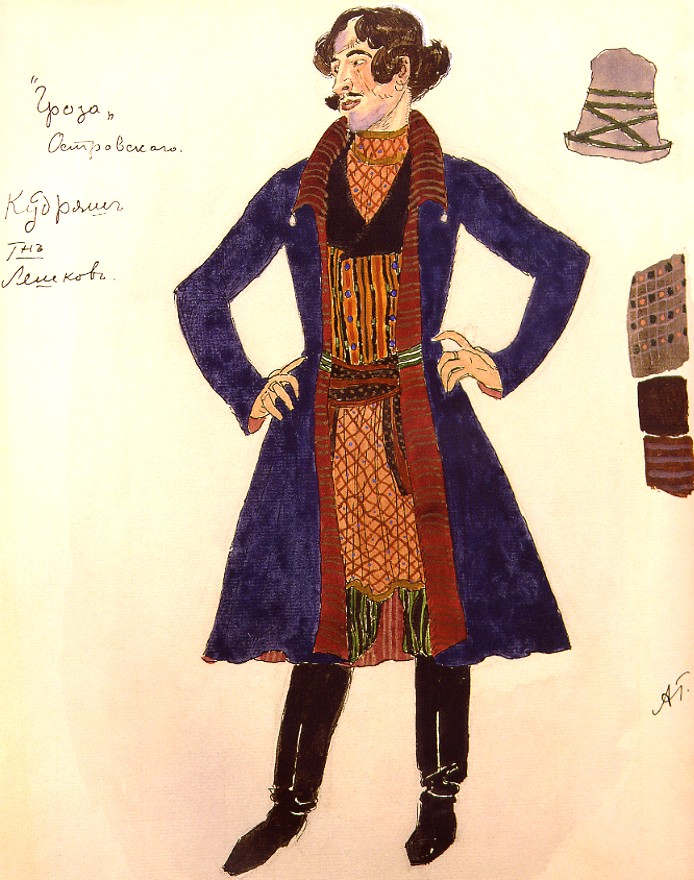 "Гроза"
Островскаго.
Кудряшъ
Гнъ
Лешковъ.
АГ.